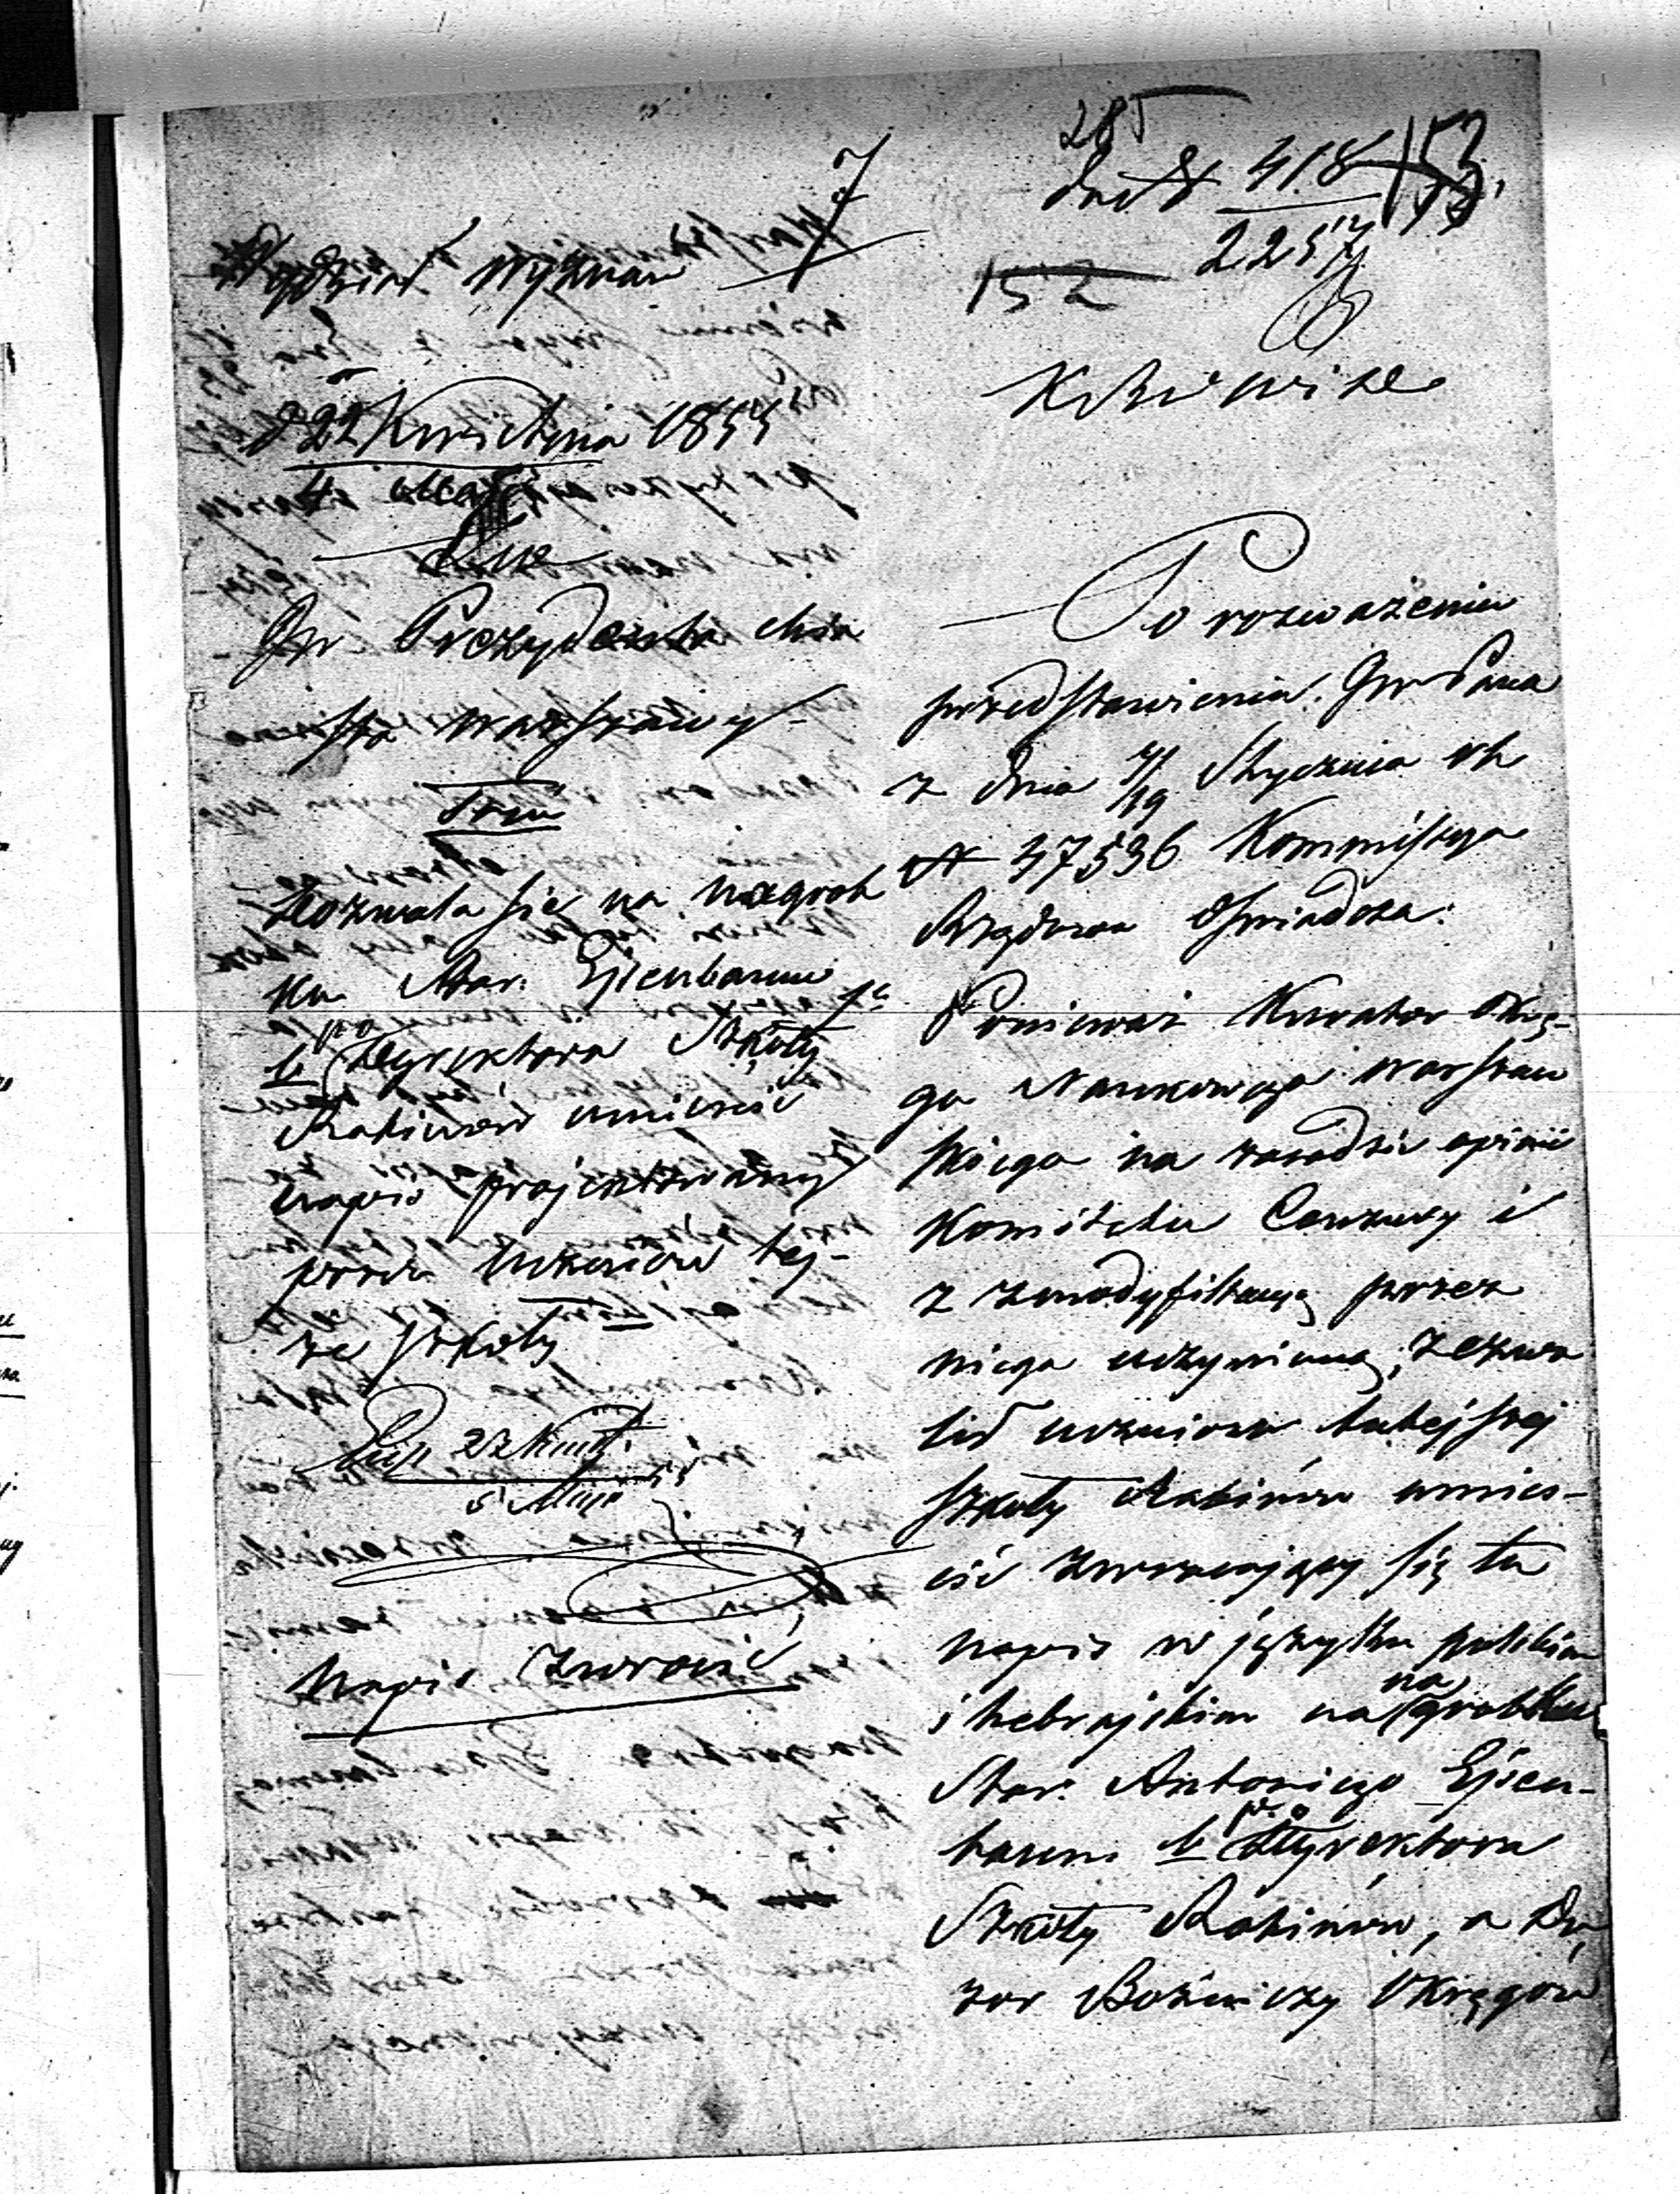 285
418
2257
153
152
Wydział Wyznań
d 22 Kwietnia 1855
4 Maja
Do
JW Prezydenta Mia
sta Warszawy
Dozwala się na nagrob
ku Star. Ejsenbauma
b. po Dyrektora Szkoły
Rabinów umieścić
napis projektowany
przez uczniów tej-
że szkoły
Exp 27 Kwiet. 55
5 Maja
Napis zwrócić
Po rozważeniu
przedstawienia JW Pana
z dnia 7/19 Stycznia rb
N 37536 Kommissya
Rządowa oświadcza:
Ponieważ Kurator Okrę-
gu Naukowego Warszaw
skiego na zasadzie opinii
Komitetu Cenzury i
z zmodyfikacyą przez
niego uczynioną, zezwo
lił uczniom tutejszej
Szkoły Rabinów umieś-
cić zwracający się tu
napis w języku polskim
i hebrajskim na nagrobku
Star. Antoniego Ejsen-
bauma b. po Dyrektora
Szkoły Rabinów, a Do
zór Bóżniczy Okręgów